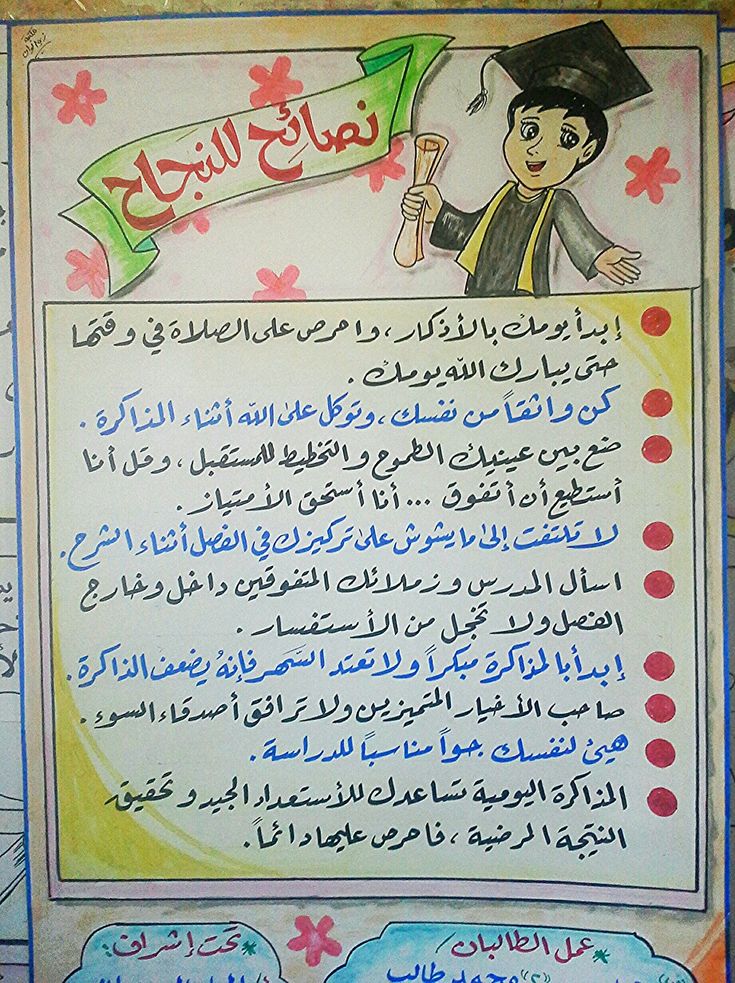 مكتبة
نصائح للنجاح
إبدأ يومك بالأذكار ، واحرص على الصلاة في وقتها
حتى يبارك الله يومك .
كن واثقاً من نفسك ، وتوكل على الله أثناء المذاكرة .
ضع بين عينيك الطموح والتخطيط للمستقبل ، وقل أنا
أستطيع أن أتفوق ... أنا أستحق الأمتياز .
لا تلتفت إلى ما يشوش على تركيزك في الفصل أثناء الشرح .
اسأل المدرس وزملائك المتفوقين داخل وخارج
الفصل ولا تخجل من الأستفسار .
إبدأ بالمذاكرة مبكراً ولا تعتد السَّهر فإنهُ يضعف الذاكرة .
صاحب الأخيار المتميزين ولا ترافق أصدقاء السوء .
هيئ لنفسك جواً مناسباً للدراسة .
المذاكرة اليومية تساعدك للأستعداد الجيد وتحقيق
النتيجة المرضية ، فاحرص عليها دائماً .
عمل الطالبان/
تحت إشراف: